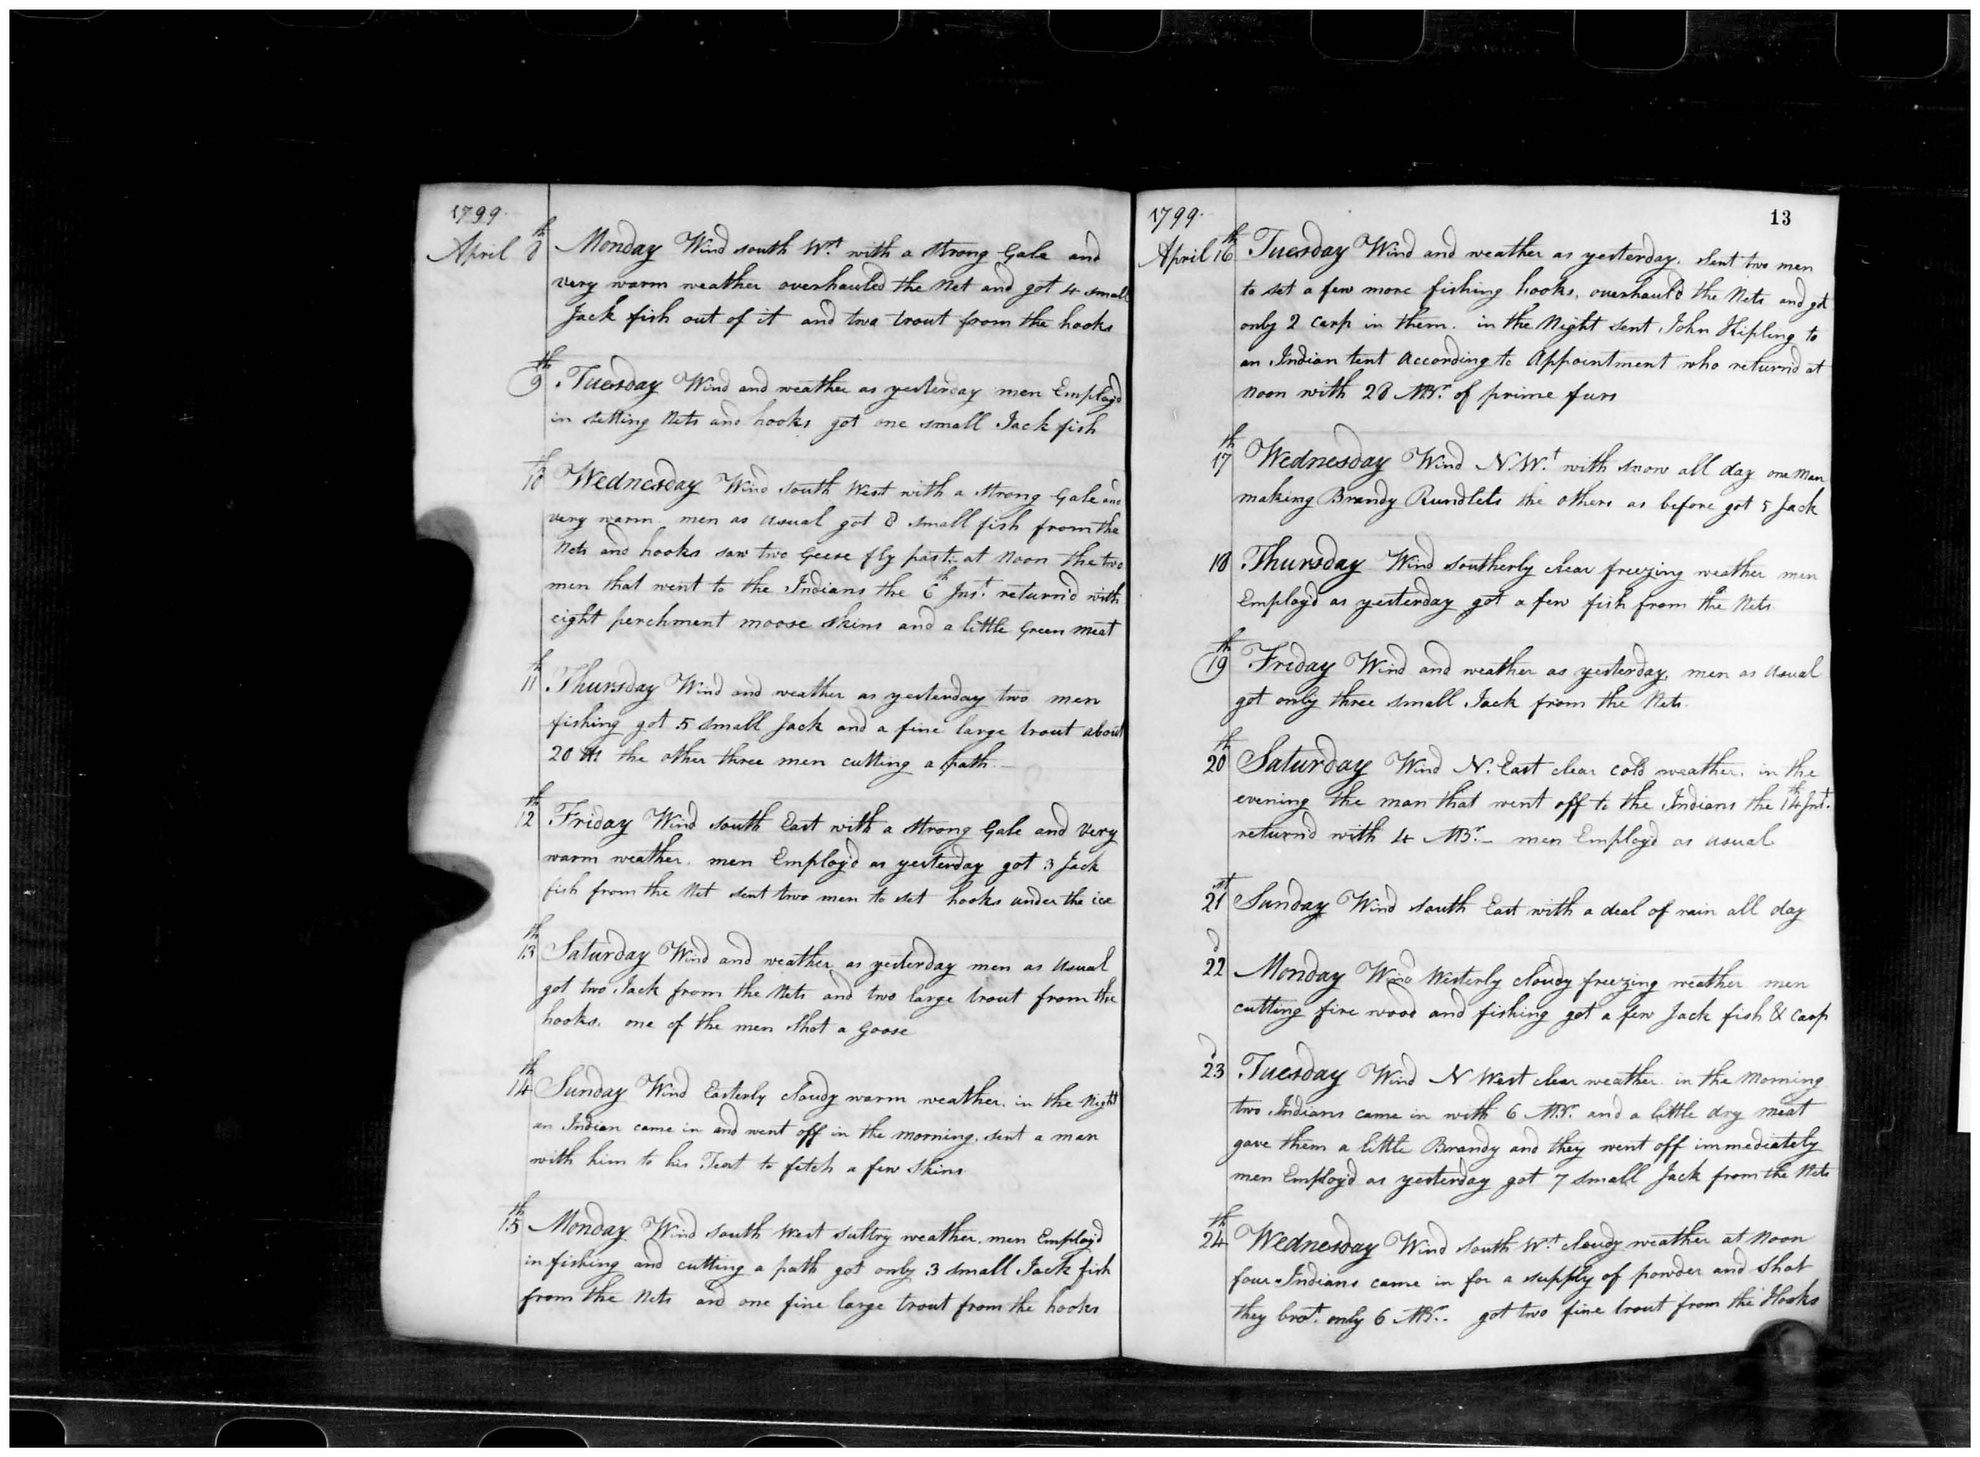 1799.
April 8th Monday Wind south Wt. with a strong Gale and
very warm weather overhauled the Net and got 4 small
Jack fish out of it and two trout from the hooks
9th Tuesday Wind and weather as yesterday men Employ'd
in setting Nets and hooks got one small Jack fish
10th Wednesday Wind south West with a strong Gale and
very warm men as usual got 8 small fish from the
Nets and hooks saw two Geese fly past. at Noon the two
men that went to the Indians the 6th Inst. return'd with
eight perchment moose skins and a little Green meat
11th Thursday Wind and weather as yesterday two men
fishing got 5 small Jack and a fine large trout about
20 lbs the other three men cutting a path.
12th Friday Wind south East with a strong Gale and very
warm weather. men Employ'd as yesterday got 3 Jack
fish from the Net sent two men to set hooks under the ice
13th Saturday Wind and weather as yesterday men as usual
got two Jack from the Nets and two large trout from the
hooks. one of the men shot a Goose
14th Sunday Wind Easterly cloudy warm weather. in the Night
an Indian came in and went off in the morning. sent a man
with him to his Tent to fetch a few skins.
15th Monday Wind south West sultry weather. men Employ'd
in fishing and cutting a path got only 3 small Jack fish
from the Nets and one fine large trout from the hooks
1799. 13
April 16th Tuesday Wind and weather as yesterday. sent two men
to set a few more fishing hooks. overhaul'd the Nets and got
only 2 carp in them. in the Night sent John Kipling to
an Indian tent According to Appointment who return'd at
Noon with 28 MBr. of prime furs
17th Wednesday Wind N.Wt. with snow all day one Man
making Brandy Rundlets the others as before got 5 Jack
18 Thursday Wind southerly clear freezing weather men
Employ'd as yesterday got a few fish from the Nets
19th Friday Wind and weather as yesterday. men as usual
got only three small Jack from the Nets.
20th Saturday Wind N. East clear cold weather. in the
evening the man that went off to the Indians the 14th Inst.
return'd with 4 MBr. – men Employ'd as usual
21st Sunday Wind south East with a deal of rain all day
22d Monday Wind Westerly cloudy freezing weather men
cutting fire wood and fishing got a few Jack fish & carp
23d Tuesday Wind N West clear weather. in the Morning
two Indians came in with 6 MBr. and a little dry meat
gave them a little Brandy and they went off immediately
men Employ'd as yesterday got 7 small Jack from the Nets
24th Wednesday Wind south Wt. cloudy weather at Noon
four Indians came in for a supply of powder and shot
they brot. only 6 MBr.. got two fine trout from the Hooks